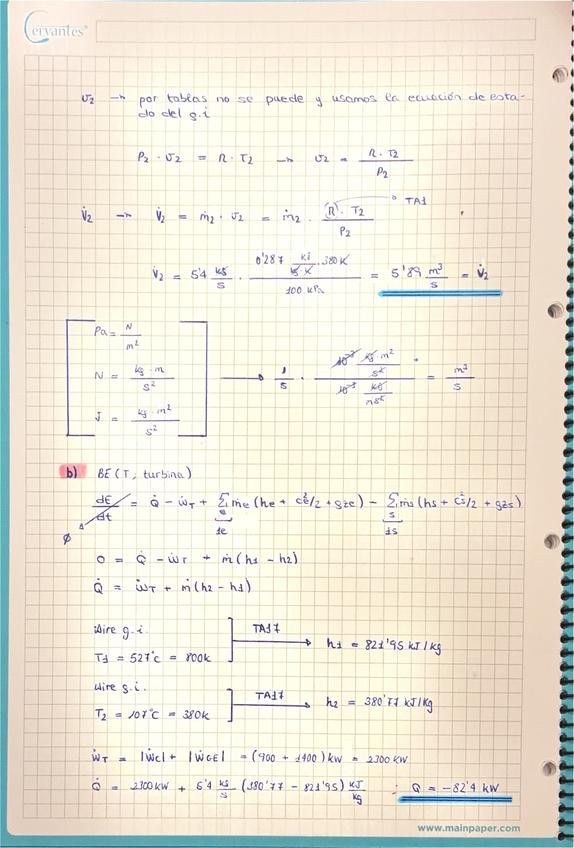 Cervantes®
v2 → por tablas no se puede y usamos la ecuación de esta-
do del g.i
P2 · v2 = R · T2 → v2 = R · T2 / P2
V̇2 → V̇2 = ṁ2 · v2 = ṁ2 · (R) · T2 / P2 → TA1
V̇2 = 5'4 kg/s · 0'287 kJ/kg·K · 380K / 100 kPa = 5'89 m³/s = V̇2
Pa = N/m²
N = kg · m / s²
J = kg · m² / s²
→ 1/s · 10⁻³ kg m²/s² / 10⁻³ kg/ms² = m³/s
b) BE (T, turbina)
dE/dt = Q̇ - ẇT + Σ ṁe (he + ce²/2 + gze) - Σ ṁs (hs + cs²/2 + gzs)
∅ e 1e s 1s
0 = Q̇ - ẇT + ṁ (h1 - h2)
Q̇ = ẇT + ṁ (h2 - h1)
Aire g.i.
T1 = 527°C = 800K
TA17 → h1 = 821'95 kJ/kg
Aire g.i.
T2 = 107°C = 380K
TA17 → h2 = 380'77 kJ/kg
ẇT = |ẇC| + |ẇGE| = (900 + 1400) kW = 2300 KW
Q̇ = 2300KW + 5'4 kg/s (380'77 - 821'95) kJ/kg ; Q = -82'4 kW
www.mainpaper.com